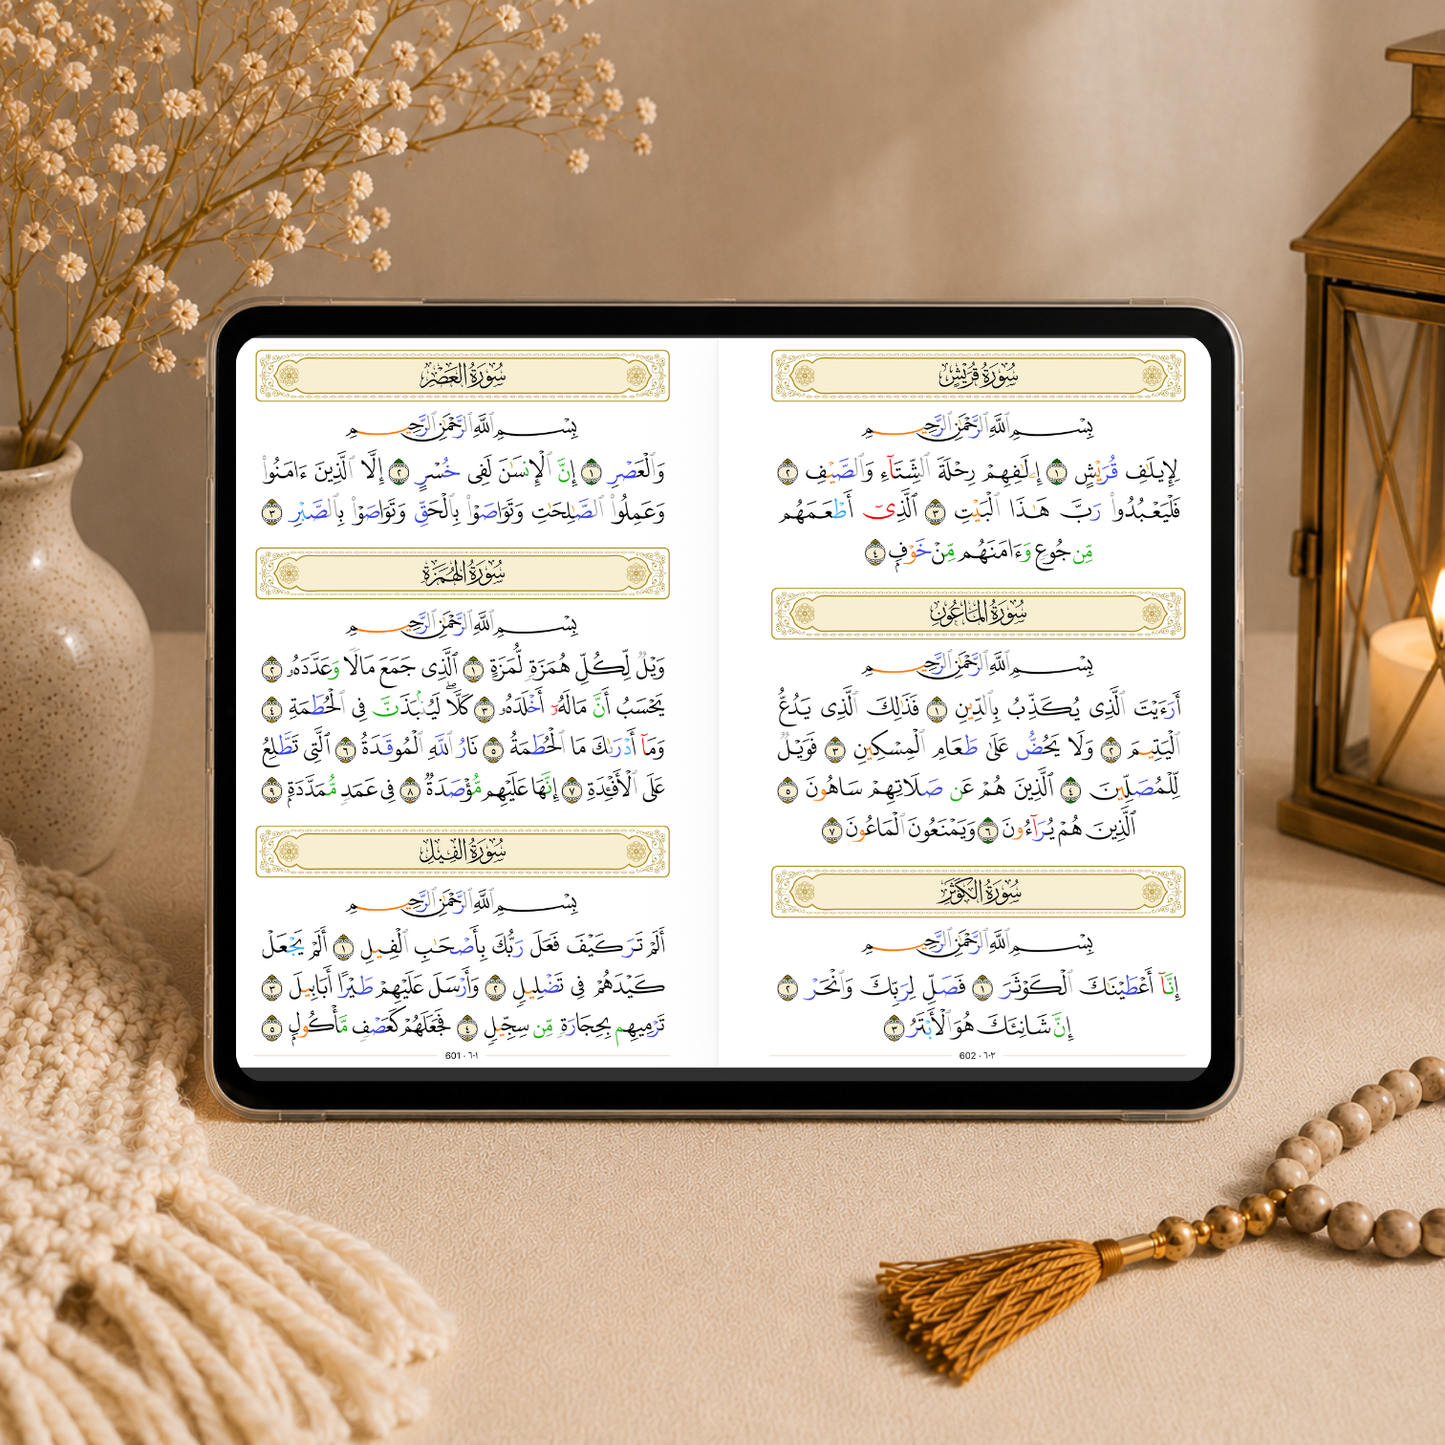 سُورَةُ العَصْرِ
بِسْمِ ٱللَّهِ ٱلرَّحْمَٰنِ ٱلرَّحِيمِ
وَٱلْعَصْرِ ١ إِنَّ ٱلْإِنسَٰنَ لَفِى خُسْرٍ ٢ إِلَّا ٱلَّذِينَ ءَامَنُوا۟
وَعَمِلُوا۟ ٱلصَّٰلِحَٰتِ وَتَوَاصَوْا۟ بِٱلْحَقِّ وَتَوَاصَوْا۟ بِٱلصَّبْرِ ٣
سُورَةُ الهُمَزَةِ
بِسْمِ ٱللَّهِ ٱلرَّحْمَٰنِ ٱلرَّحِيمِ
وَيْلٌ لِّكُلِّ هُمَزَةٍ لُّمَزَةٍ ١ ٱلَّذِى جَمَعَ مَالًا وَعَدَّدَهُۥ ٢
يَحْسَبُ أَنَّ مَالَهُۥٓ أَخْلَدَهُۥ ٣ كَلَّا ۖ لَيُنۢبَذَنَّ فِى ٱلْحُطَمَةِ ٤
وَمَآ أَدْرَىٰكَ مَا ٱلْحُطَمَةُ ٥ نَارُ ٱللَّهِ ٱلْمُوقَدَةُ ٦ ٱلَّتِى تَطَّلِعُ
عَلَى ٱلْأَفْـِٔدَةِ ٧ إِنَّهَا عَلَيْهِم مُّؤْصَدَةٌ ٨ فِى عَمَدٍ مُّمَدَّدَةٍۭ ٩
سُورَةُ الفِيلِ
بِسْمِ ٱللَّهِ ٱلرَّحْمَٰنِ ٱلرَّحِيمِ
أَلَمْ تَرَ كَيْفَ فَعَلَ رَبُّكَ بِأَصْحَٰبِ ٱلْفِيلِ ١ أَلَمْ يَجْعَلْ
كَيْدَهُمْ فِى تَضْلِيلٍ ٢ وَأَرْسَلَ عَلَيْهِمْ طَيْرًا أَبَابِيلَ ٣
تَرْمِيهِم بِحِجَارَةٍ مِّن سِجِّيلٍ ٤ فَجَعَلَهُمْ كَعَصْفٍ مَّأْكُولٍۭ ٥
601 · ٦٠١
سُورَةُ قُرَيْشٍ
بِسْمِ ٱللَّهِ ٱلرَّحْمَٰنِ ٱلرَّحِيمِ
لِإِيلَٰفِ قُرَيْشٍ ١ إِۦلَٰفِهِمْ رِحْلَةَ ٱلشِّتَآءِ وَٱلصَّيْفِ ٢
فَلْيَعْبُدُوا۟ رَبَّ هَٰذَا ٱلْبَيْتِ ٣ ٱلَّذِىٓ أَطْعَمَهُم
مِّن جُوعٍ وَءَامَنَهُم مِّنْ خَوْفٍۭ ٤
سُورَةُ المَاعُونِ
بِسْمِ ٱللَّهِ ٱلرَّحْمَٰنِ ٱلرَّحِيمِ
أَرَءَيْتَ ٱلَّذِى يُكَذِّبُ بِٱلدِّينِ ١ فَذَٰلِكَ ٱلَّذِى يَدُعُّ
ٱلْيَتِيمَ ٢ وَلَا يَحُضُّ عَلَىٰ طَعَامِ ٱلْمِسْكِينِ ٣ فَوَيْلٌ
لِّلْمُصَلِّينَ ٤ ٱلَّذِينَ هُمْ عَن صَلَاتِهِمْ سَاهُونَ ٥
ٱلَّذِينَ هُمْ يُرَآءُونَ ٦ وَيَمْنَعُونَ ٱلْمَاعُونَ ٧
سُورَةُ الكَوْثَرِ
بِسْمِ ٱللَّهِ ٱلرَّحْمَٰنِ ٱلرَّحِيمِ
إِنَّآ أَعْطَيْنَٰكَ ٱلْكَوْثَرَ ١ فَصَلِّ لِرَبِّكَ وَٱنْحَرْ ٢
إِنَّ شَانِئَكَ هُوَ ٱلْأَبْتَرُ ٣
602 · ٦٠٢